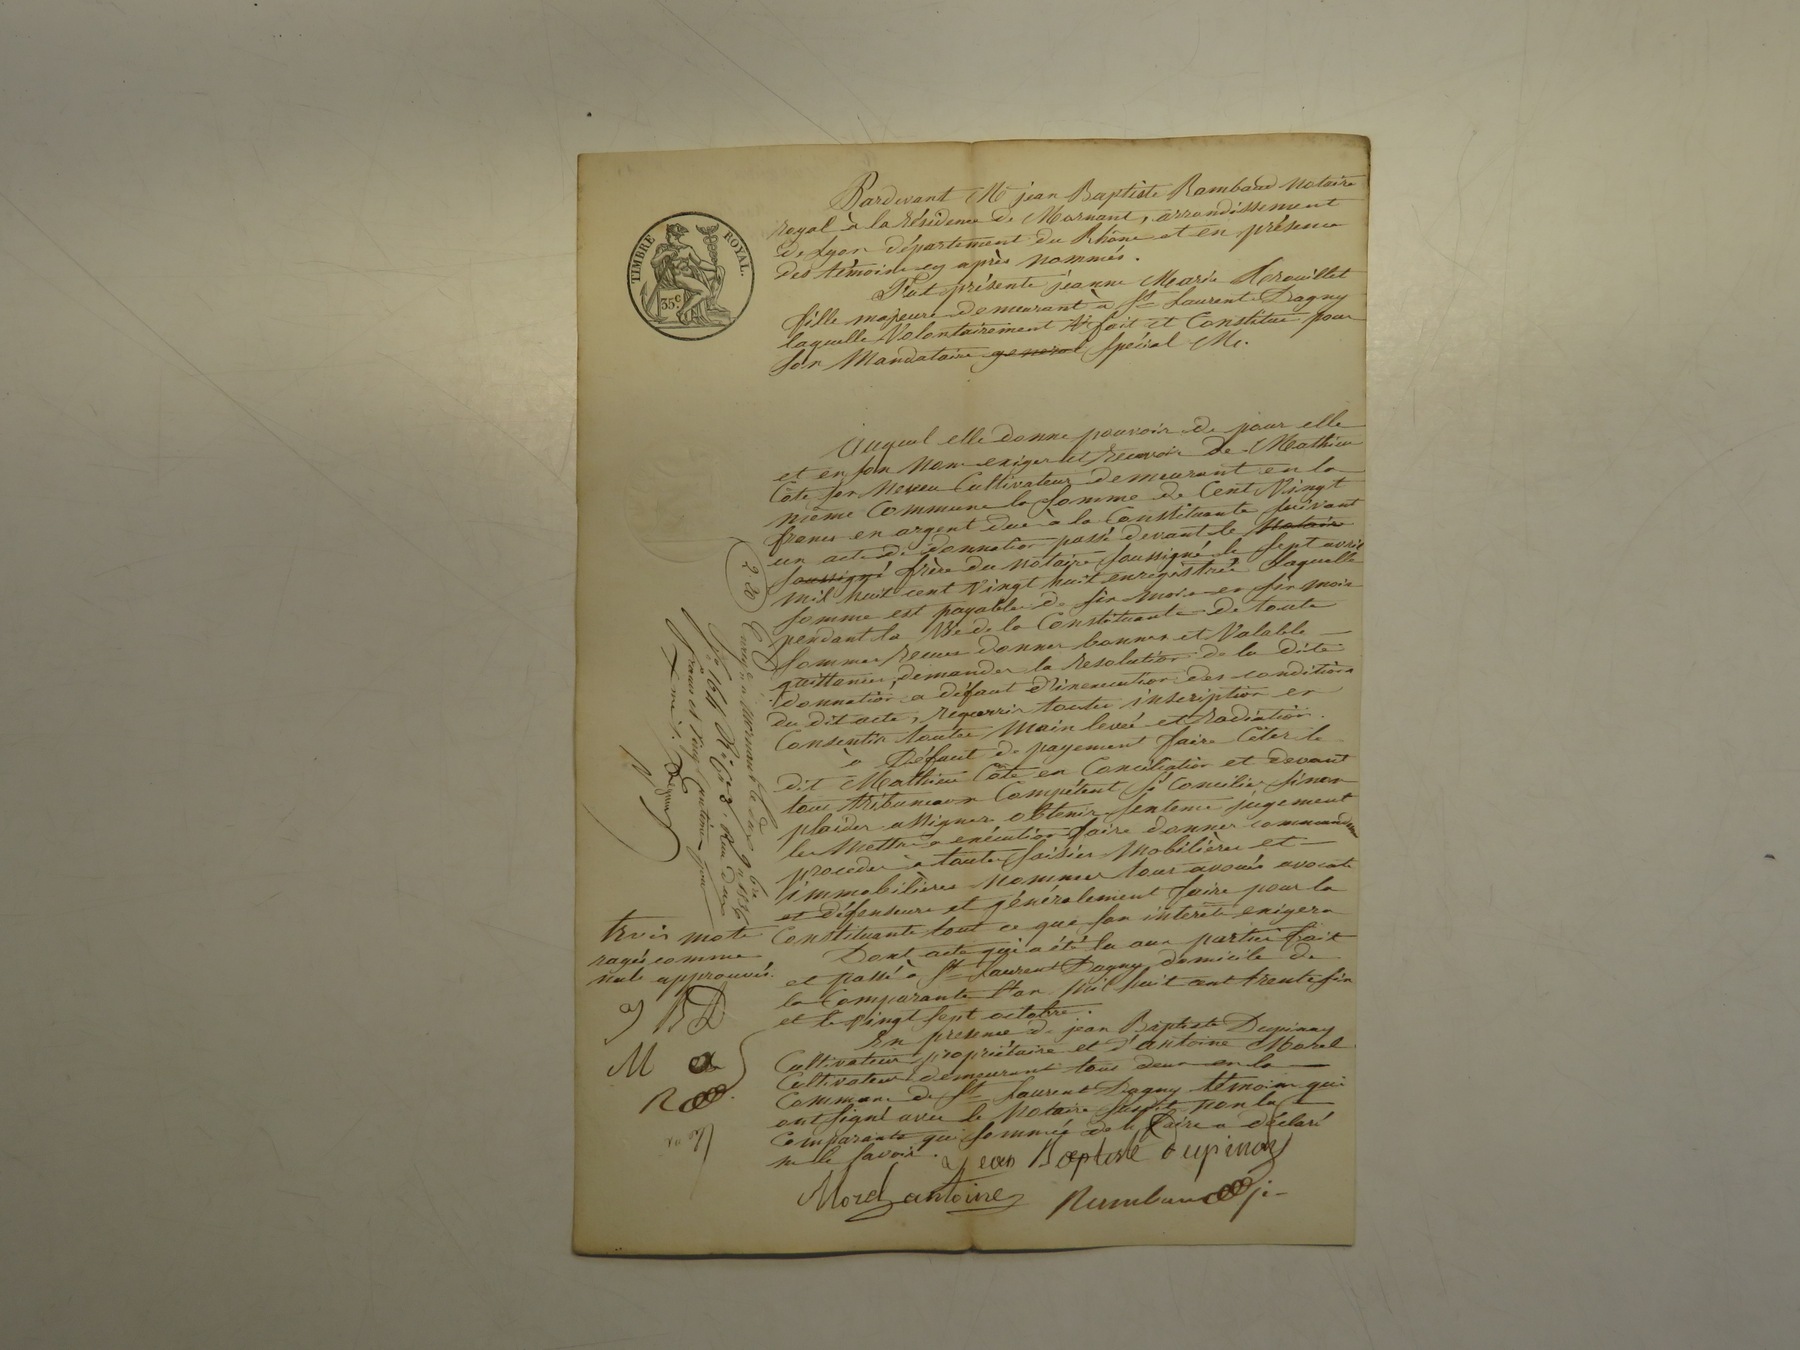 TIMBRE ROYAL.
35c
Pardevant Me jean Baptiste Rambaud Notaire
royal à la résidence de Mornant, arrondissement
de Lyon département du Rhône et en présence
des témoins cy après nommés.
Fut présente jeanne Marie
fille majeure demeurant à St Laurent Dagny
laquelle Volontairement a fait et Constitue pour
son Mandataire general spécial Me.
Auquel elle donne pouvoir de pour elle
et en son Nom exiger et recevoir de Mathieu
Côte son Neveu Cultivateur demeurant en la
même Commune la somme de Cent Vingt
francs en argent due à la Constituante suivant
un acte de donnation passé devant le Notaire
soussigné frère du notaire soussigné le sept avril
mil huit cent vingt huit enregistrée laquelle
somme est payable de six mois en six mois
pendant la Vie de la Constituante de toute
sommes recues donner bonnes et Valable
quittances, demander la resolution de la dite
donnation a défaut d'inexecution des conditions
du dit acte, requerrir toutes inscription en
Consentir toutes Main levée et radiation.
à Défaut de payement faire Citer le
dit Mathieu Côte en Conciliation et devant
tous tribunaux Compétent s'y Concilier sinon
plaider assigner obtenir sentence jugement
les Mettre a exécution faire donner commandem
proceder à toutes saisies Mobilières et
immobilières Nommer tous avoués avocats
et défenseurs et généralement faire pour la
Constituante tout ce que son intérêts exigera
Dont acte qui a été lu aux parties fait
et passé à St Laurent Dagny domicile de
la Comparante l'an mil huit cent trente six
et le Vingt sept octobre.
En présence de jean Baptiste Dupinay
Cultivateur propriétaire et d'antoine Morel
Cultivateur demeurant tous deux en la
Commune de St Laurent Dagny témoins qui
ont signé avec le Notaire susdit non la
Comparante qui sommée de le faire a déclaré
ne le savoir.
jean Baptiste dupinay
Morel antoine
Rambaud
2 20
trois mots
rayés comme
nuls approuvés.
j B D
M a
R